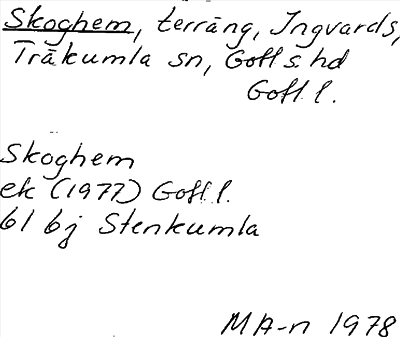 Skoghem, terräng, Ingvards,
Träkumla sn, Gotl s. hd
Gotl. l.
Skoghem
ek (1977) Gotl. l.
bl bj Stenkumla
MA-n 1978